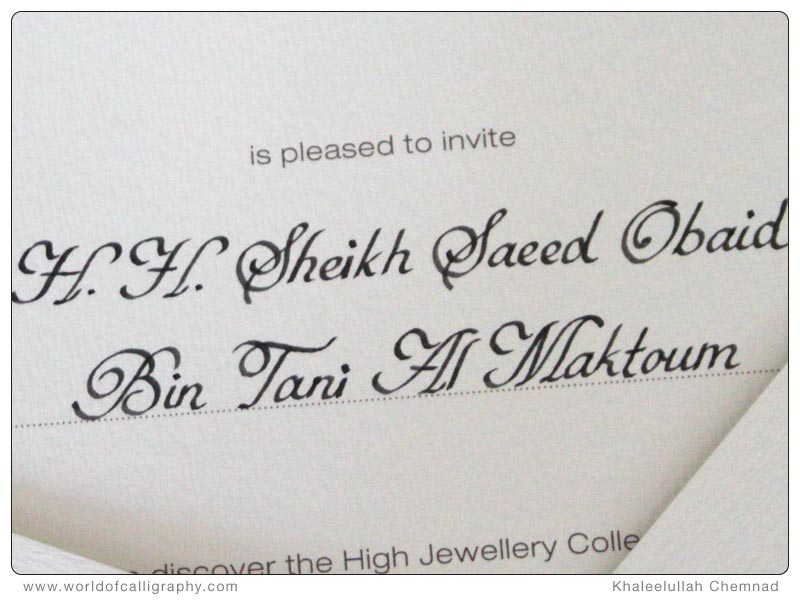 is pleased to invite
H. H. Sheikh Saeed Obaid
Bin Tani Al Maktoum
discover the High Jewellery Colle
www.worldofcalligraphy.com
Khaleelullah Chemnad